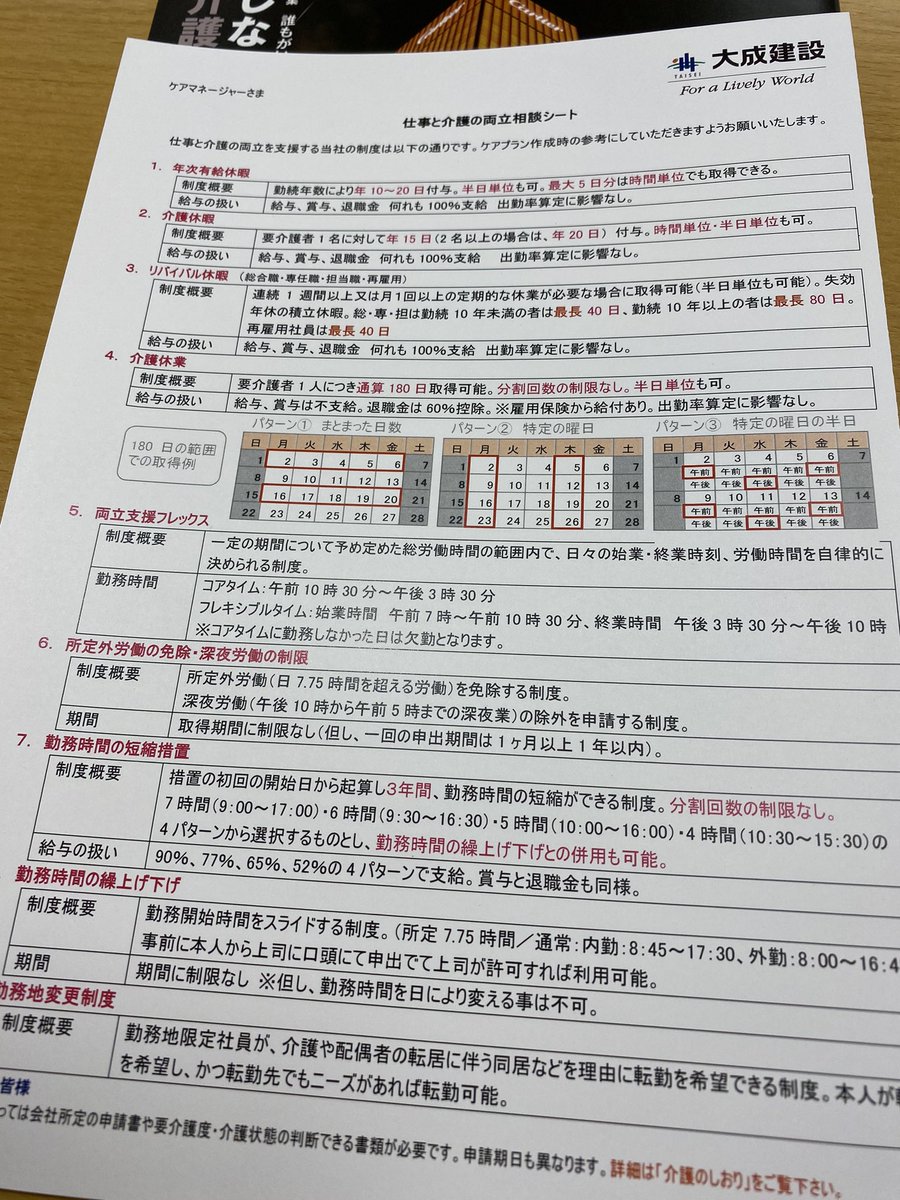 業 誰もが
しな
介護
Cartier
大成建設
TAISEI
For a Lively World
ケアマネージャーさま
仕事と介護の両立相談シート
仕事と介護の両立を支援する当社の制度は以下の通りです。ケアプラン作成時の参考にしていただきますようお願いいたします。
1. 年次有給休暇
制度概要 勤続年数により年10~20日付与。半日単位も可。最大5日分は時間単位でも取得できる。
給与の扱い 給与、賞与、退職金 何れも100%支給 出勤率算定に影響なし。
2. 介護休暇
制度概要 要介護者1名に対して年15日(2名以上の場合は、年20日) 付与。時間単位・半日単位も可。
給与の扱い 給与、賞与、退職金 何れも100%支給 出勤率算定に影響なし。
3. リバイバル休暇 (総合職・専任職・担当職・再雇用)
制度概要 連続1週間以上又は月1回以上の定期的な休業が必要な場合に取得可能(半日単位も可能)。失効
年休の積立休暇。総・専・担は勤続10年未満の者は最長40日、勤続10年以上の者は最長80日。
再雇用社員は最長40日
給与の扱い 給与、賞与、退職金 何れも100%支給 出勤率算定に影響なし。
4. 介護休業
制度概要 要介護者1人につき通算180日取得可能。分割回数の制限なし。半日単位も可。
給与の扱い 給与、賞与は不支給。退職金は60%控除。※雇用保険から給付あり。出勤率算定に影響なし。
180 日の範囲
での取得例
パターン① まとまった日数
日 月 火 水 木 金 土
1 2 3 4 5 6 7
8 9 10 11 12 13 14
15 16 17 18 19 20 21
22 23 24 25 26 27 28
パターン② 特定の曜日
日 月 火 水 木 金 土
1 2 3 4 5 6 7
8 9 10 11 12 13 14
15 16 17 18 19 20 21
22 23 24 25 26 27 28
パターン③ 特定の曜日の半日
日 月 火 水 木 金 土
1 2 3 4 5 6 7
午前 午前 午前 午前 午前
午後 午後 午後 午後 午後
8 9 10 11 12 13 14
午前 午前 午前 午前 午前
午後 午後 午後 午後 午後
5. 両立支援フレックス
制度概要 一定の期間について予め定めた総労働時間の範囲内で、日々の始業・終業時刻、労働時間を自律的に
決められる制度。
勤務時間 コアタイム:午前10時30分~午後3時30分
フレキシブルタイム:始業時間 午前7時~午前10時30分、終業時間 午後3時30分~午後10時
※コアタイムに勤務しなかった日は欠勤となります。
6. 所定外労働の免除・深夜労働の制限
制度概要 所定外労働(日7.75時間を超える労働)を免除する制度。
深夜労働(午後10時から午前5時までの深夜業)の除外を申請する制度。
期間 取得期間に制限なし(但し、一回の申出期間は1ヶ月以上1年以内)。
7. 勤務時間の短縮措置
制度概要 措置の初回の開始日から起算し3年間、勤務時間の短縮ができる制度。分割回数の制限なし。
7時間(9:00~17:00)・6時間(9:30~16:30)・5時間(10:00~16:00)・4時間(10:30~15:30)の
4パターンから選択するものとし、勤務時間の繰上げ下げとの併用も可能。
給与の扱い 90%、77%、65%、52%の4パターンで支給。賞与と退職金も同様。
勤務時間の繰上げ下げ
制度概要 勤務開始時間をスライドする制度。(所定7.75時間/通常:内勤:8:45~17:30、外勤:8:00~16:4
事前に本人から上司に口頭にて申出でて上司が許可すれば利用可能。
期間 期間に制限なし ※但し、勤務時間を日により変える事は不可。
勤務地変更制度
制度概要 勤務地限定社員が、介護や配偶者の転居に伴う同居などを理由に転勤を希望できる制度。本人が
を希望し、かつ転勤先でもニーズがあれば転勤可能。
皆様
っては会社所定の申請書や要介護度・介護状態の判断できる書類が必要です。申請期日も異なります。詳細は「介護のしおり」をご覧下さい。